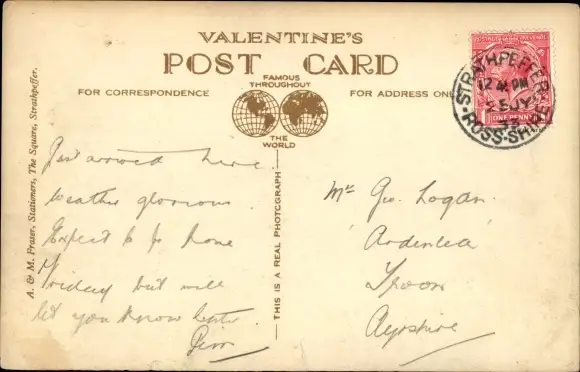 VALENTINE'S
POST CARD
FAMOUS
THROUGHOUT
FOR CORRESPONDENCE
FOR ADDRESS ONL
THE
WORLD
THIS IS A REAL PHOTOGRAPH
A. & M. Fraser, Stationers, The Square, Strathpeffer.
STRATHPEFFER
12 PM
JY
ROSS-SHIRE
ONE PENNY
Just arrived here
Weather glorious
Expect to be home
Friday but will
let you know later
Jim
Mr Geo. Logan
'Ardenlea'
Troon
Ayrshire